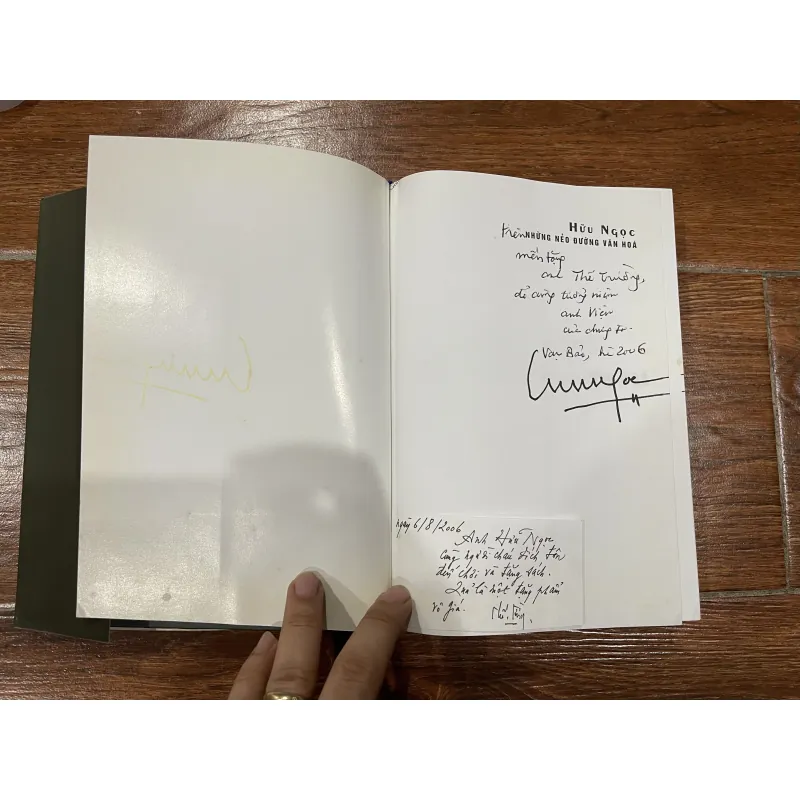 HỮU NGỌC
trên NHỮNG NẺO ĐƯỜNG VĂN HOÁ
mến tặng
anh Thế Trường,
để cùng tưởng niệm
anh Viện
của chúng ta.
Vạn Bảo, hè 2006
Huungoc
ngày 6/8/2006
Anh Hữu Ngọc
cùng người cháu đích tôn
đến chơi và tặng sách.
Quả là một tặng phẩm
vô giá.